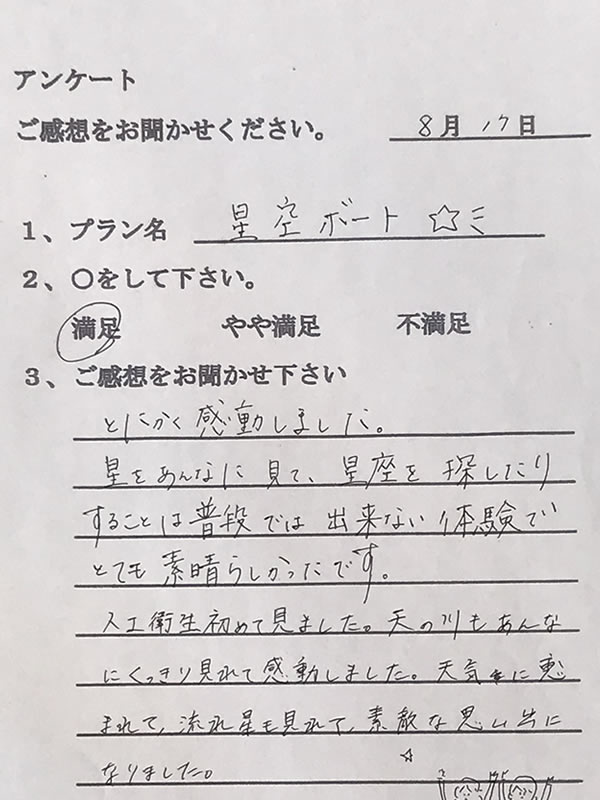 アンケート
ご感想をお聞かせください。 8月17日
1、プラン名 星空ボート☆ミ
2、○をして下さい。
満足 やや満足 不満足
3、ご感想をお聞かせ下さい
とにかく感動しました。
星をあんなに見て、星座を探したり
することは普段では出来ない体験で
とても素晴らしかったです。
人工衛生初めて見ました。天の川もあんな
にくっきり見れて感動しました。天気に恵
まれて、流れ星も見れて、素敵な思い出に
なりました。☆